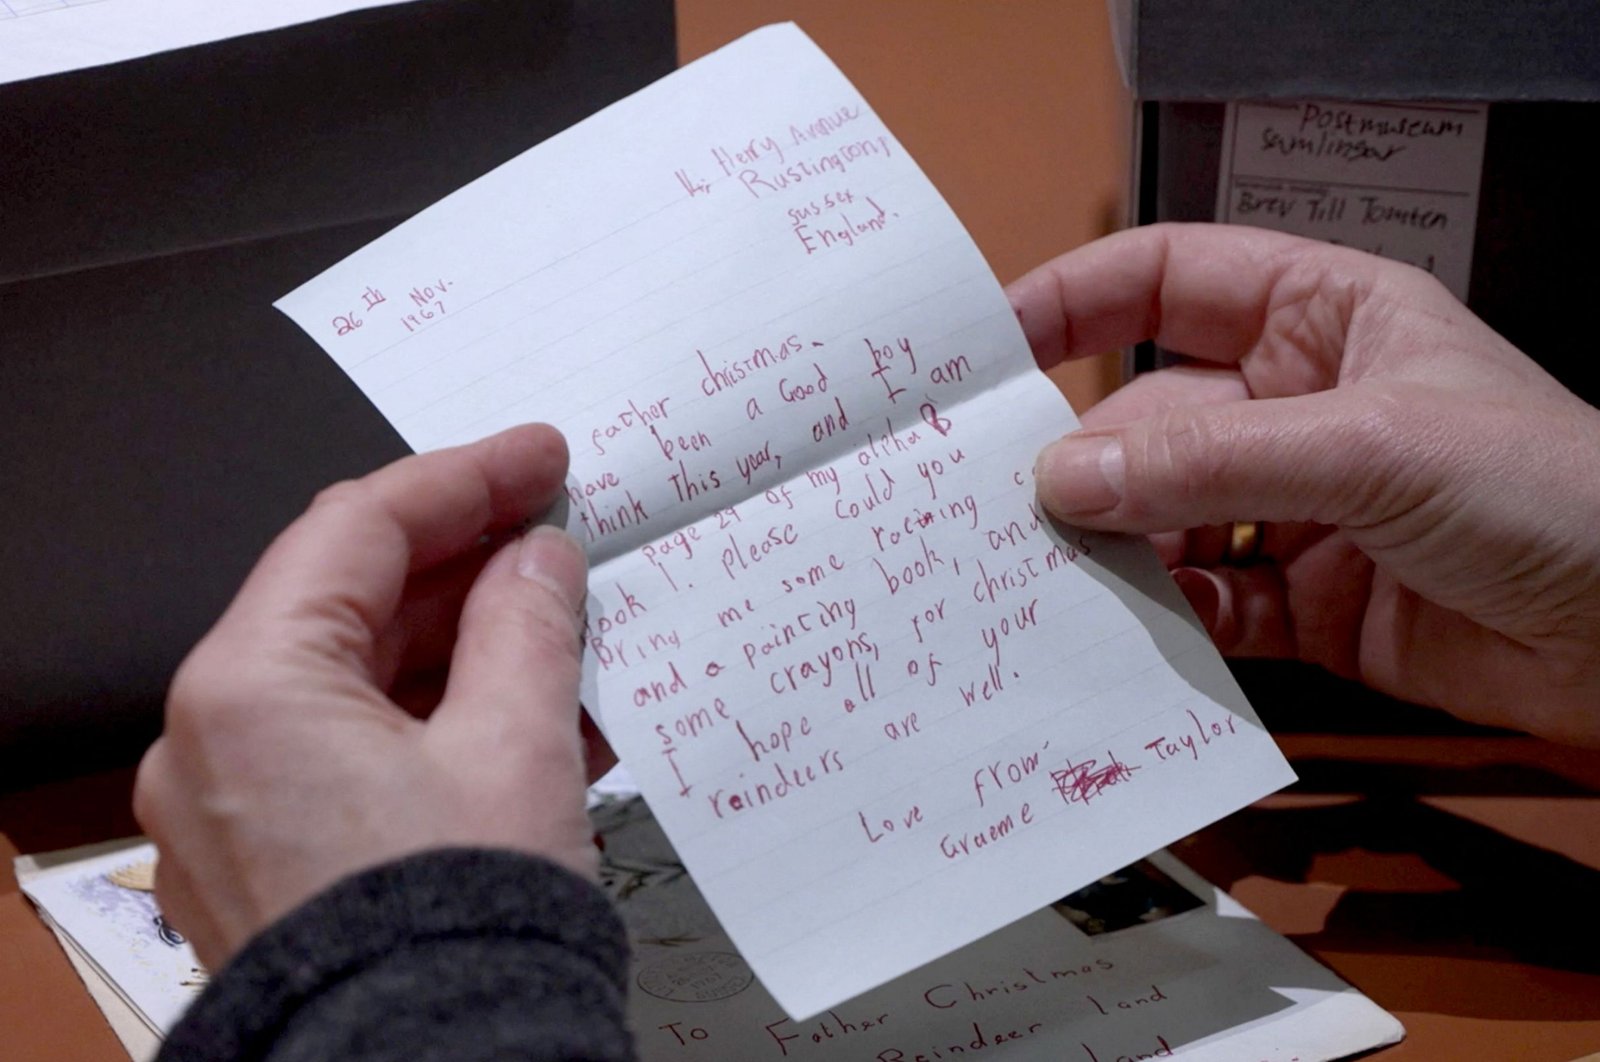 Henry Avenue
Rustington,
Sussex
England.
26th Nov.
1967
father christmas.
have been a Good boy
think This year, and I am
page 29 of my alpha B
book 1. please could you
Bring me some racing
and a painting book, and
some crayons, for christmas
I hope all of your
reindeers are well.
Love from
Graeme Taylor
To Father Christmas
Reindeer land
land
Postmuseum
samlingar
Brev Till Tomten